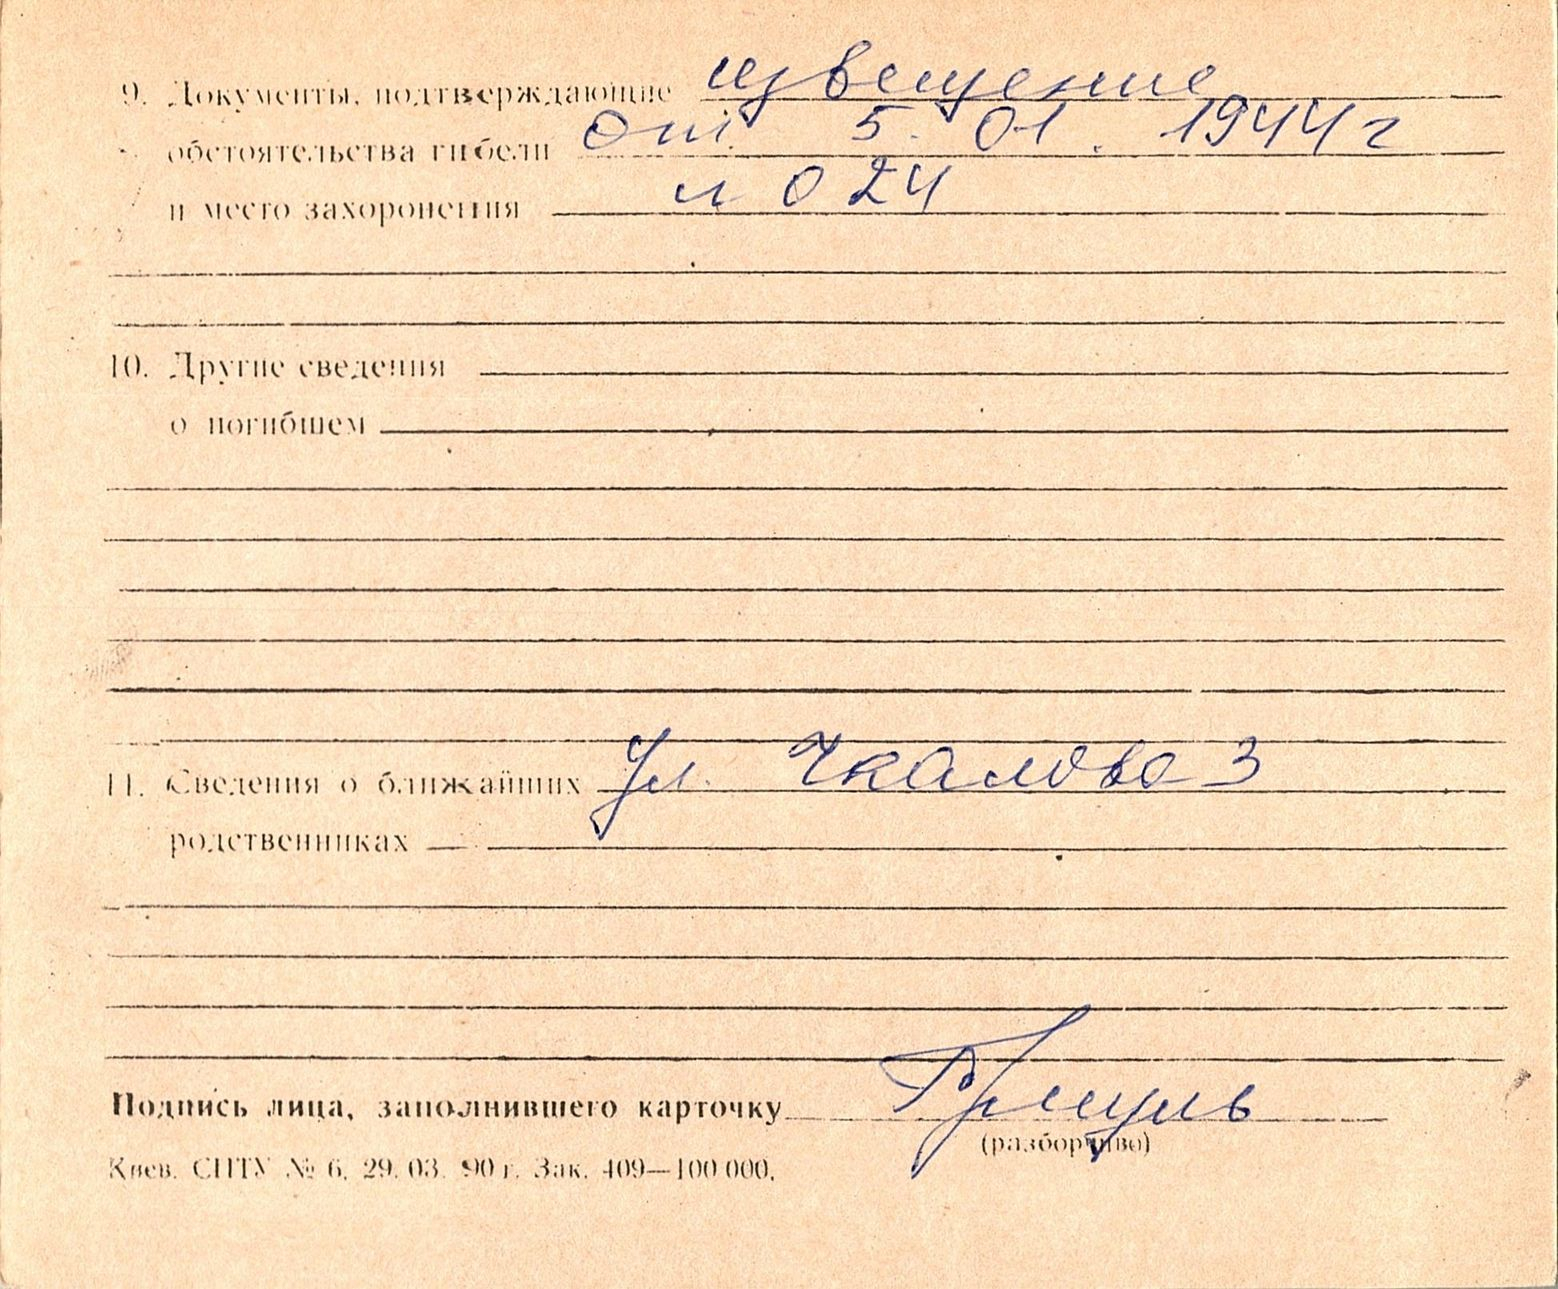 9. Документы, подтверждающие извещение
обстоятельства гибели от 5. 01. 1944 г
и место захоронения л 024
10. Другие сведения
о погибшем
11. Сведения о ближайших ул. Чкалова 3
родственниках
Подпись лица, заполнившего карточку
(разборчиво)
Киев. СПТУ № 6. 29. 03. 90 г. Зак. 409—100 000.